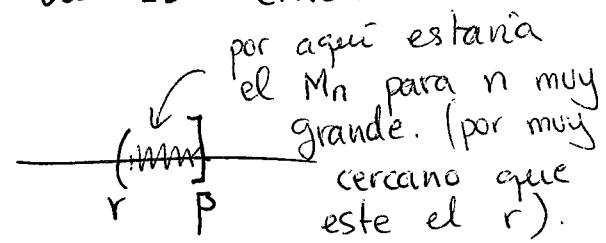 por aquí estaría
el Mn para n muy
grande. (por muy
cercano que
este el r).
r β